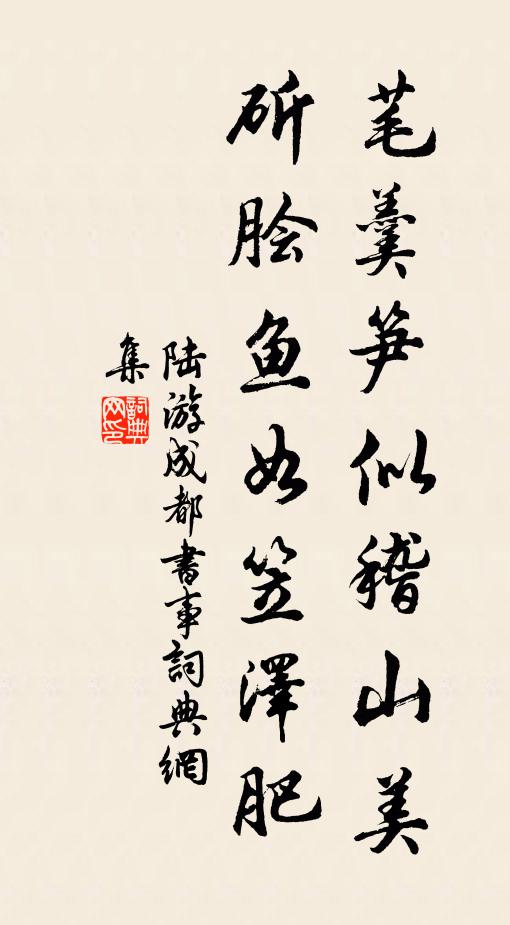 芼羹笋似稽山美
斫脍鱼如笠澤肥
陆游成都書事詞典網
集
詞典
网印